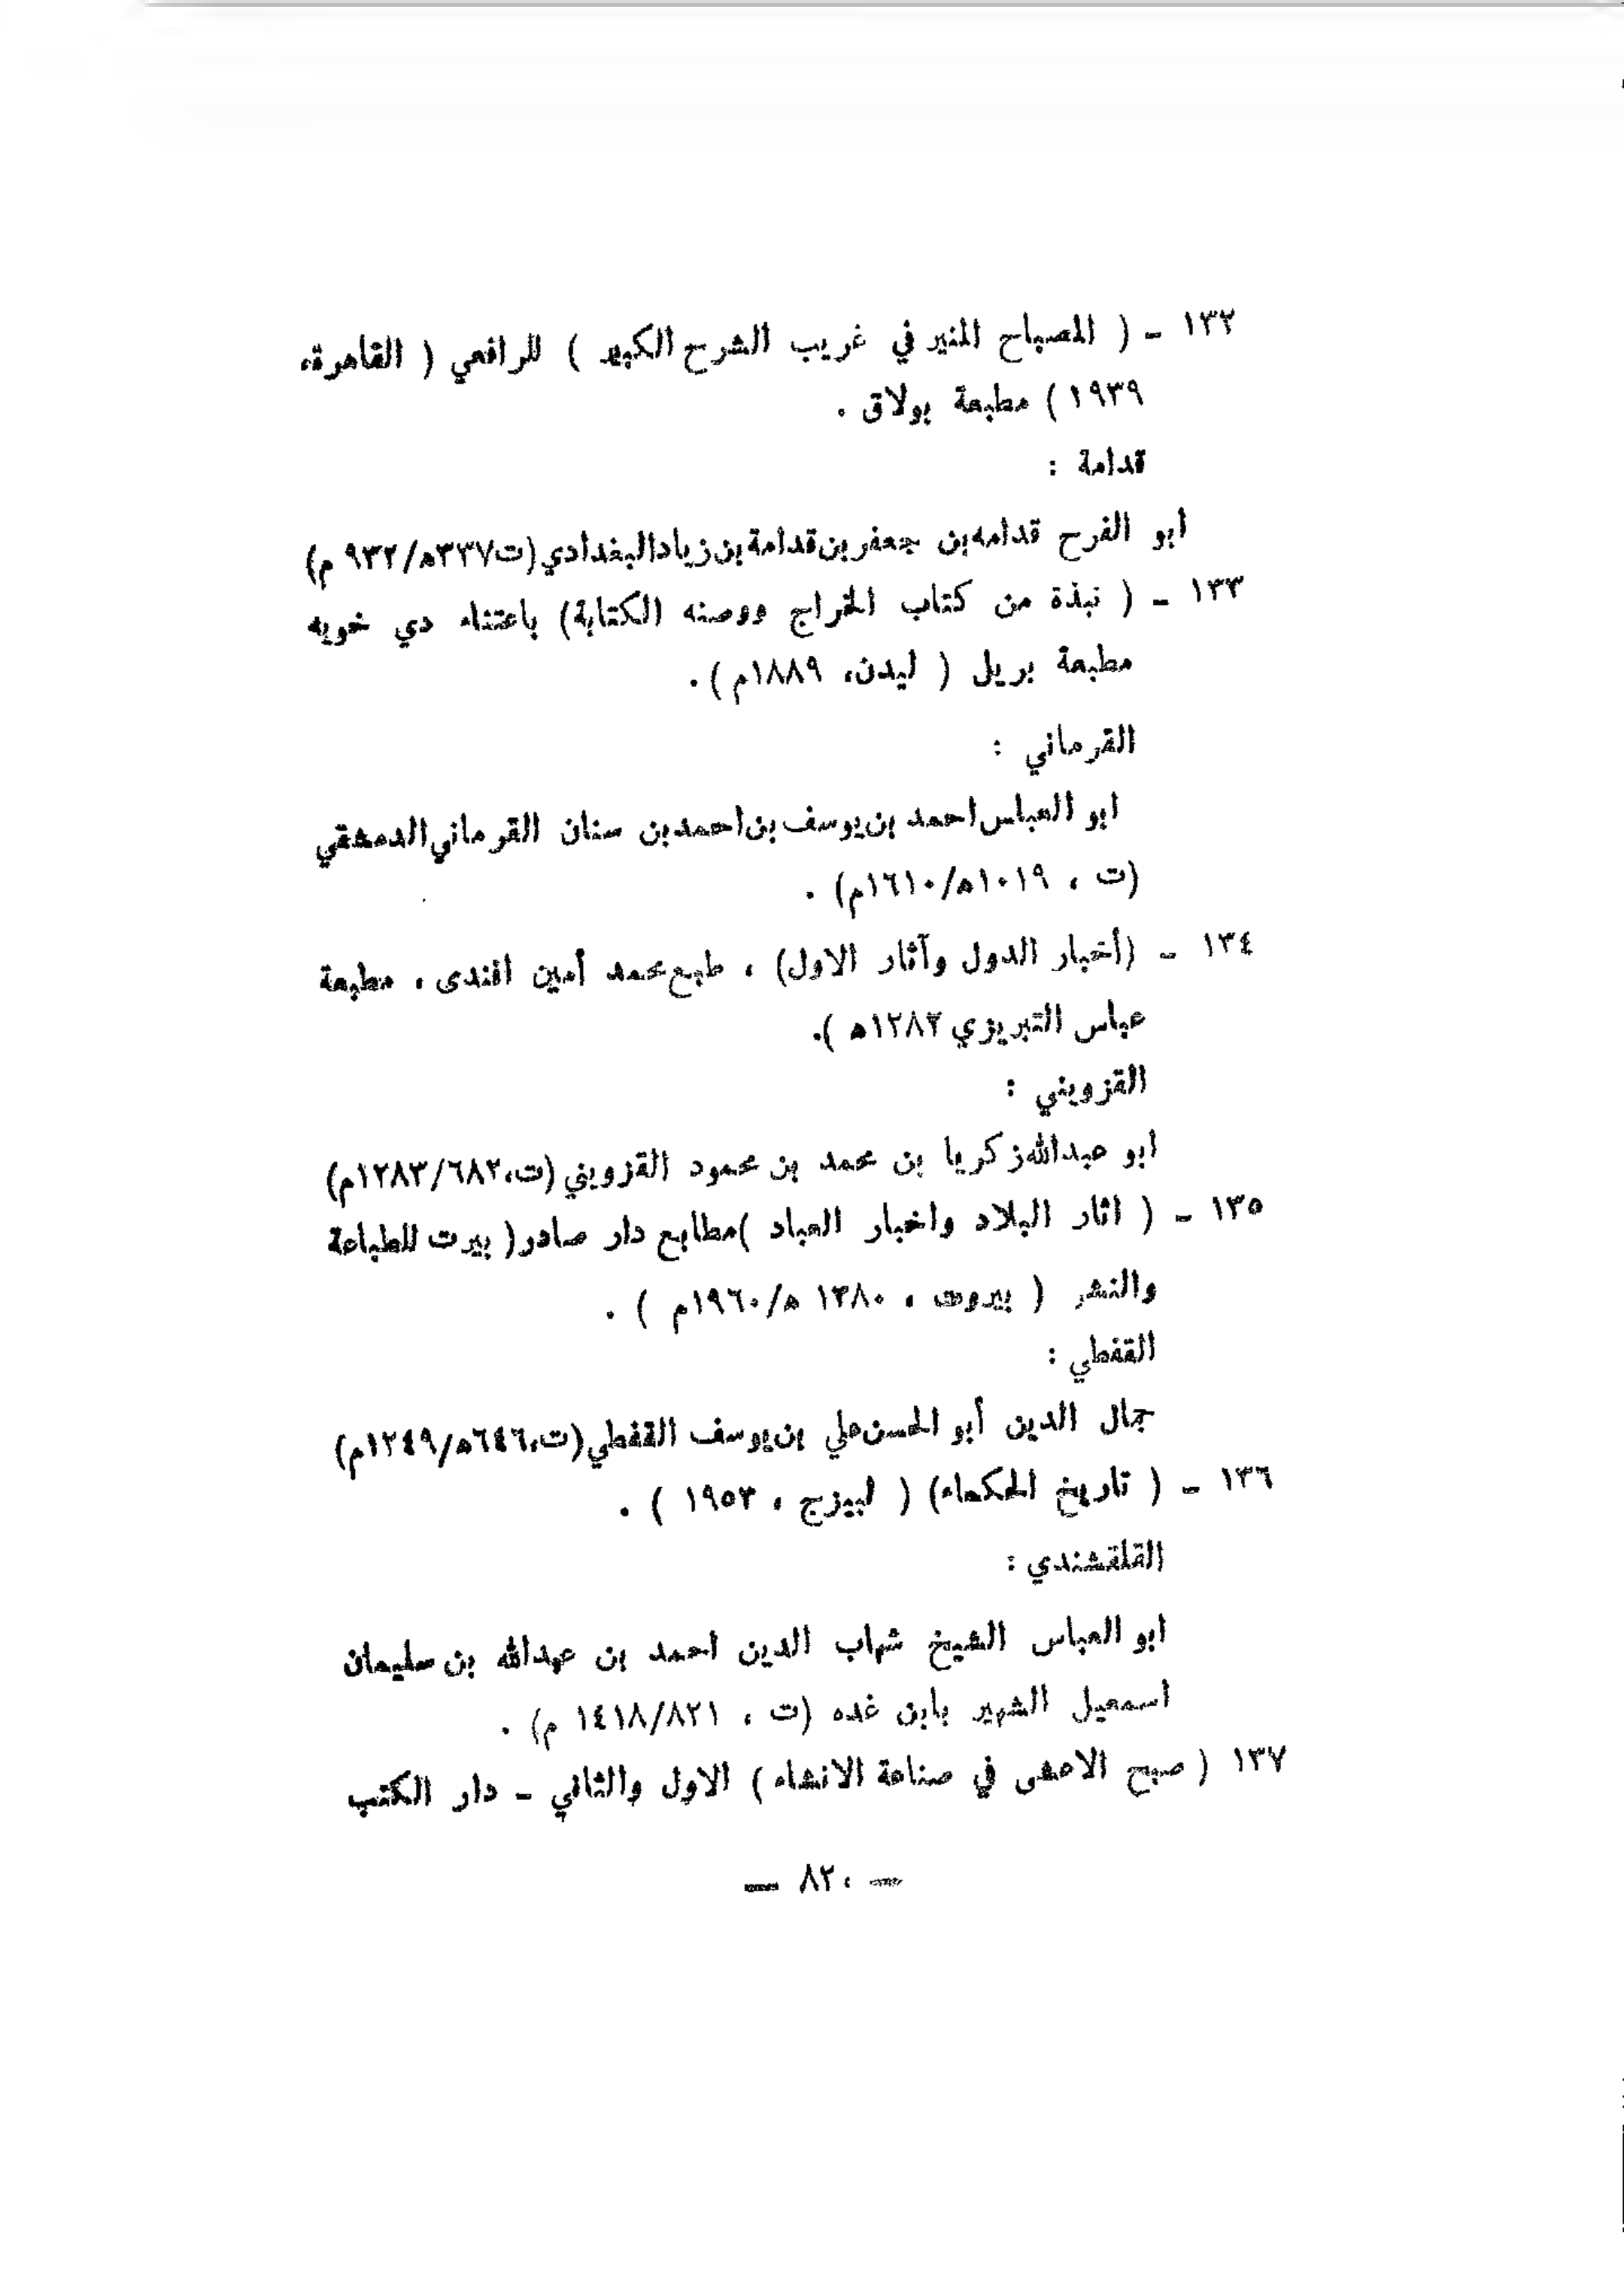 ١٣٢ ـ ( المصباح المنير في غريب الشرح الكبير ) للرافعي ( القاهرة،
١٩٣٩ ) مطبعة بولاق .
قدامة :
أبو الفرح قدامه بن جعفر بن قدامة بن زياد البغدادي (ت٣٣٧ه/٩٣٢ م)
١٣٣ ـ ( نبذة من كتاب الخراج ووصنه الكتابة) باعتناء دي خويه
مطبعة بريل ( ليدن، ١٨٨٩م ) .
القرماني :
ابو العباس احمد بن يوسف بن احمد بن سنان القرماني الدمشقي
(ت ، ١٠١٩ه/١٦١٠م) .
١٣٤ ـ (أخبار الدول وآثار الاول) ، طبع محمد أمين افندى ، مطبعة
عباس التبريزي ١٢٨٢ه ).
القزويني :
ابو عبدالله زكريا بن محمد بن محمود القزويني (ت،١٢٨٣/٦٨٢م)
١٣٥ ـ ( اثار البلاد واخبار العباد )مطابع دار صادر( بيرت للطباعة
والنشر ( بيروت ، ١٣٨٠ ه/١٩٦٠م ) .
القفطي :
جمال الدين أبو الحسن علي بن يوسف القفطي (ت،٦٤٦ه/١٢٤٩م)
١٣٦ ـ ( تاريخ الحكماء) ( لبيزج ، ١٩٥٣ ) .
القلقشندي :
ابو العباس الشيخ شهاب الدين احمد بن عبدالله بن سليمان
اسمعيل الشهير بابن غده (ت ، ١٤١٨/٨٢١ م) .
١٣٧ ( صبح الاعشى في صناعة الانشاء ) الاول والثاني ـ دار الكتب
— ٨٢٠ —